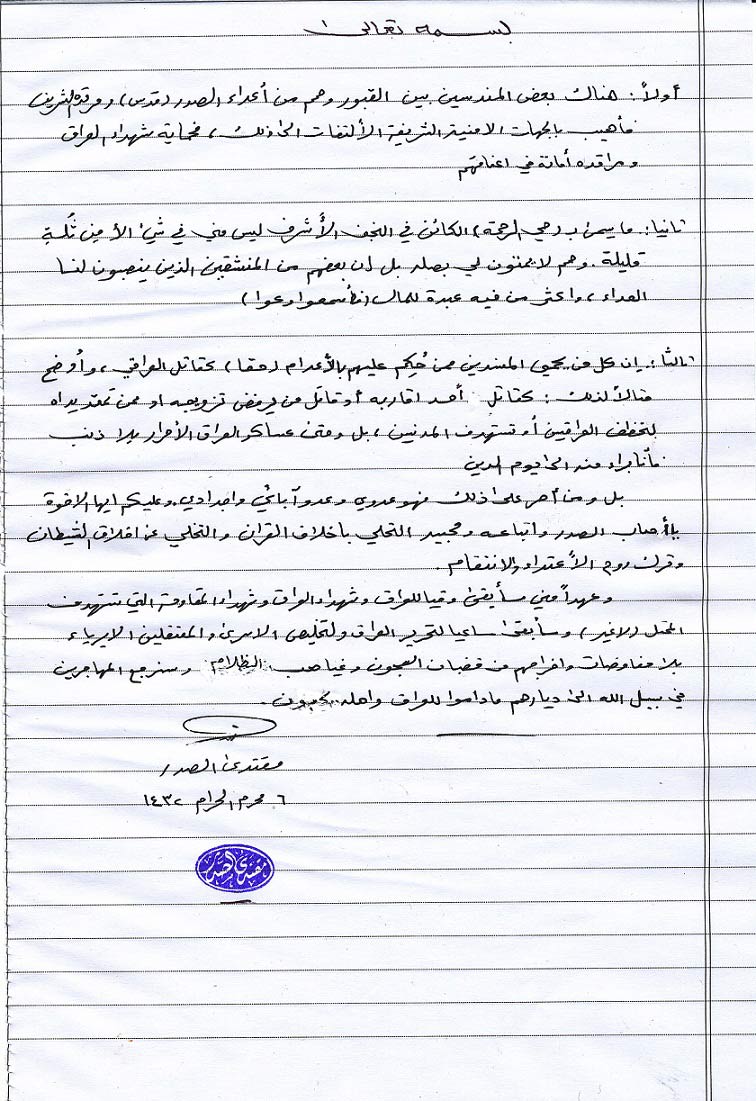 بسمه تعالى
أولاً: هناك بعض المندسين بين القبور وهم من أعداء الصدر (قدس) ومرقده الشريف
فأهيب بالجهات الامنية الشريفة الألتفات الى ذلك، فحماية شهداء العراق
ومراقده أمانة في اعناقهم
ثانيا: ما يسمى بـ (حي الرحمة) الكائن في النجف الأشرف ليس مني في شيء الأ من ثُلةٍ
قليلة. وهم لا يمتون لي بصلة بل ان بعضهم من المنشقين الذين ينصبون لنا
العداء، واكثر من فيه عبدة للمال
ثالثا: إن كل من يحمي المفسدين ممن حُكِم عليهم بالأعدام (حقا) كقاتل العراقي، وأُوضح
مثالاً لذلك: كقاتل أحد اقاربه أو قاتل من يرفض تزويجه او ممن تمتد يداه
لخطف العراقيين أو تستهدف المدنيين، بل وحتى عساكر العراق الأحرار بلا ذنب
فأنا براء منه الى يوم الدين
بل ومن أصر على ذلك فهو عدوي وعدو آبائي واجدادي. وعليكم ايها الاخوة
يا أحباب الصدر وأتباعه ومحبيه التحلي بأخلاق القران والتخلي عن اخلاق الشيطان
وترك روح الأعتداء والانتقام.
وعهداً مني سأبقى وفيا للعراق وشهداء العراق وشهداء المقاومة التي تستهدف
المحتل (لاغير) وسأبقى ساعيا لتحرير العراق ولتخليص الاسرى والمعتقلين الابرياء
بلا مفاوضات واخراجهم من قضبان السجون وغياهب الظلام وسنرجع المهاجرين
في سبيل الله الى ديارهم ما داموا للعراق واهله يحبون.
مقتدى الصدر
٦ محرم الحرام ١٤٣٢
مقتدى الصدر